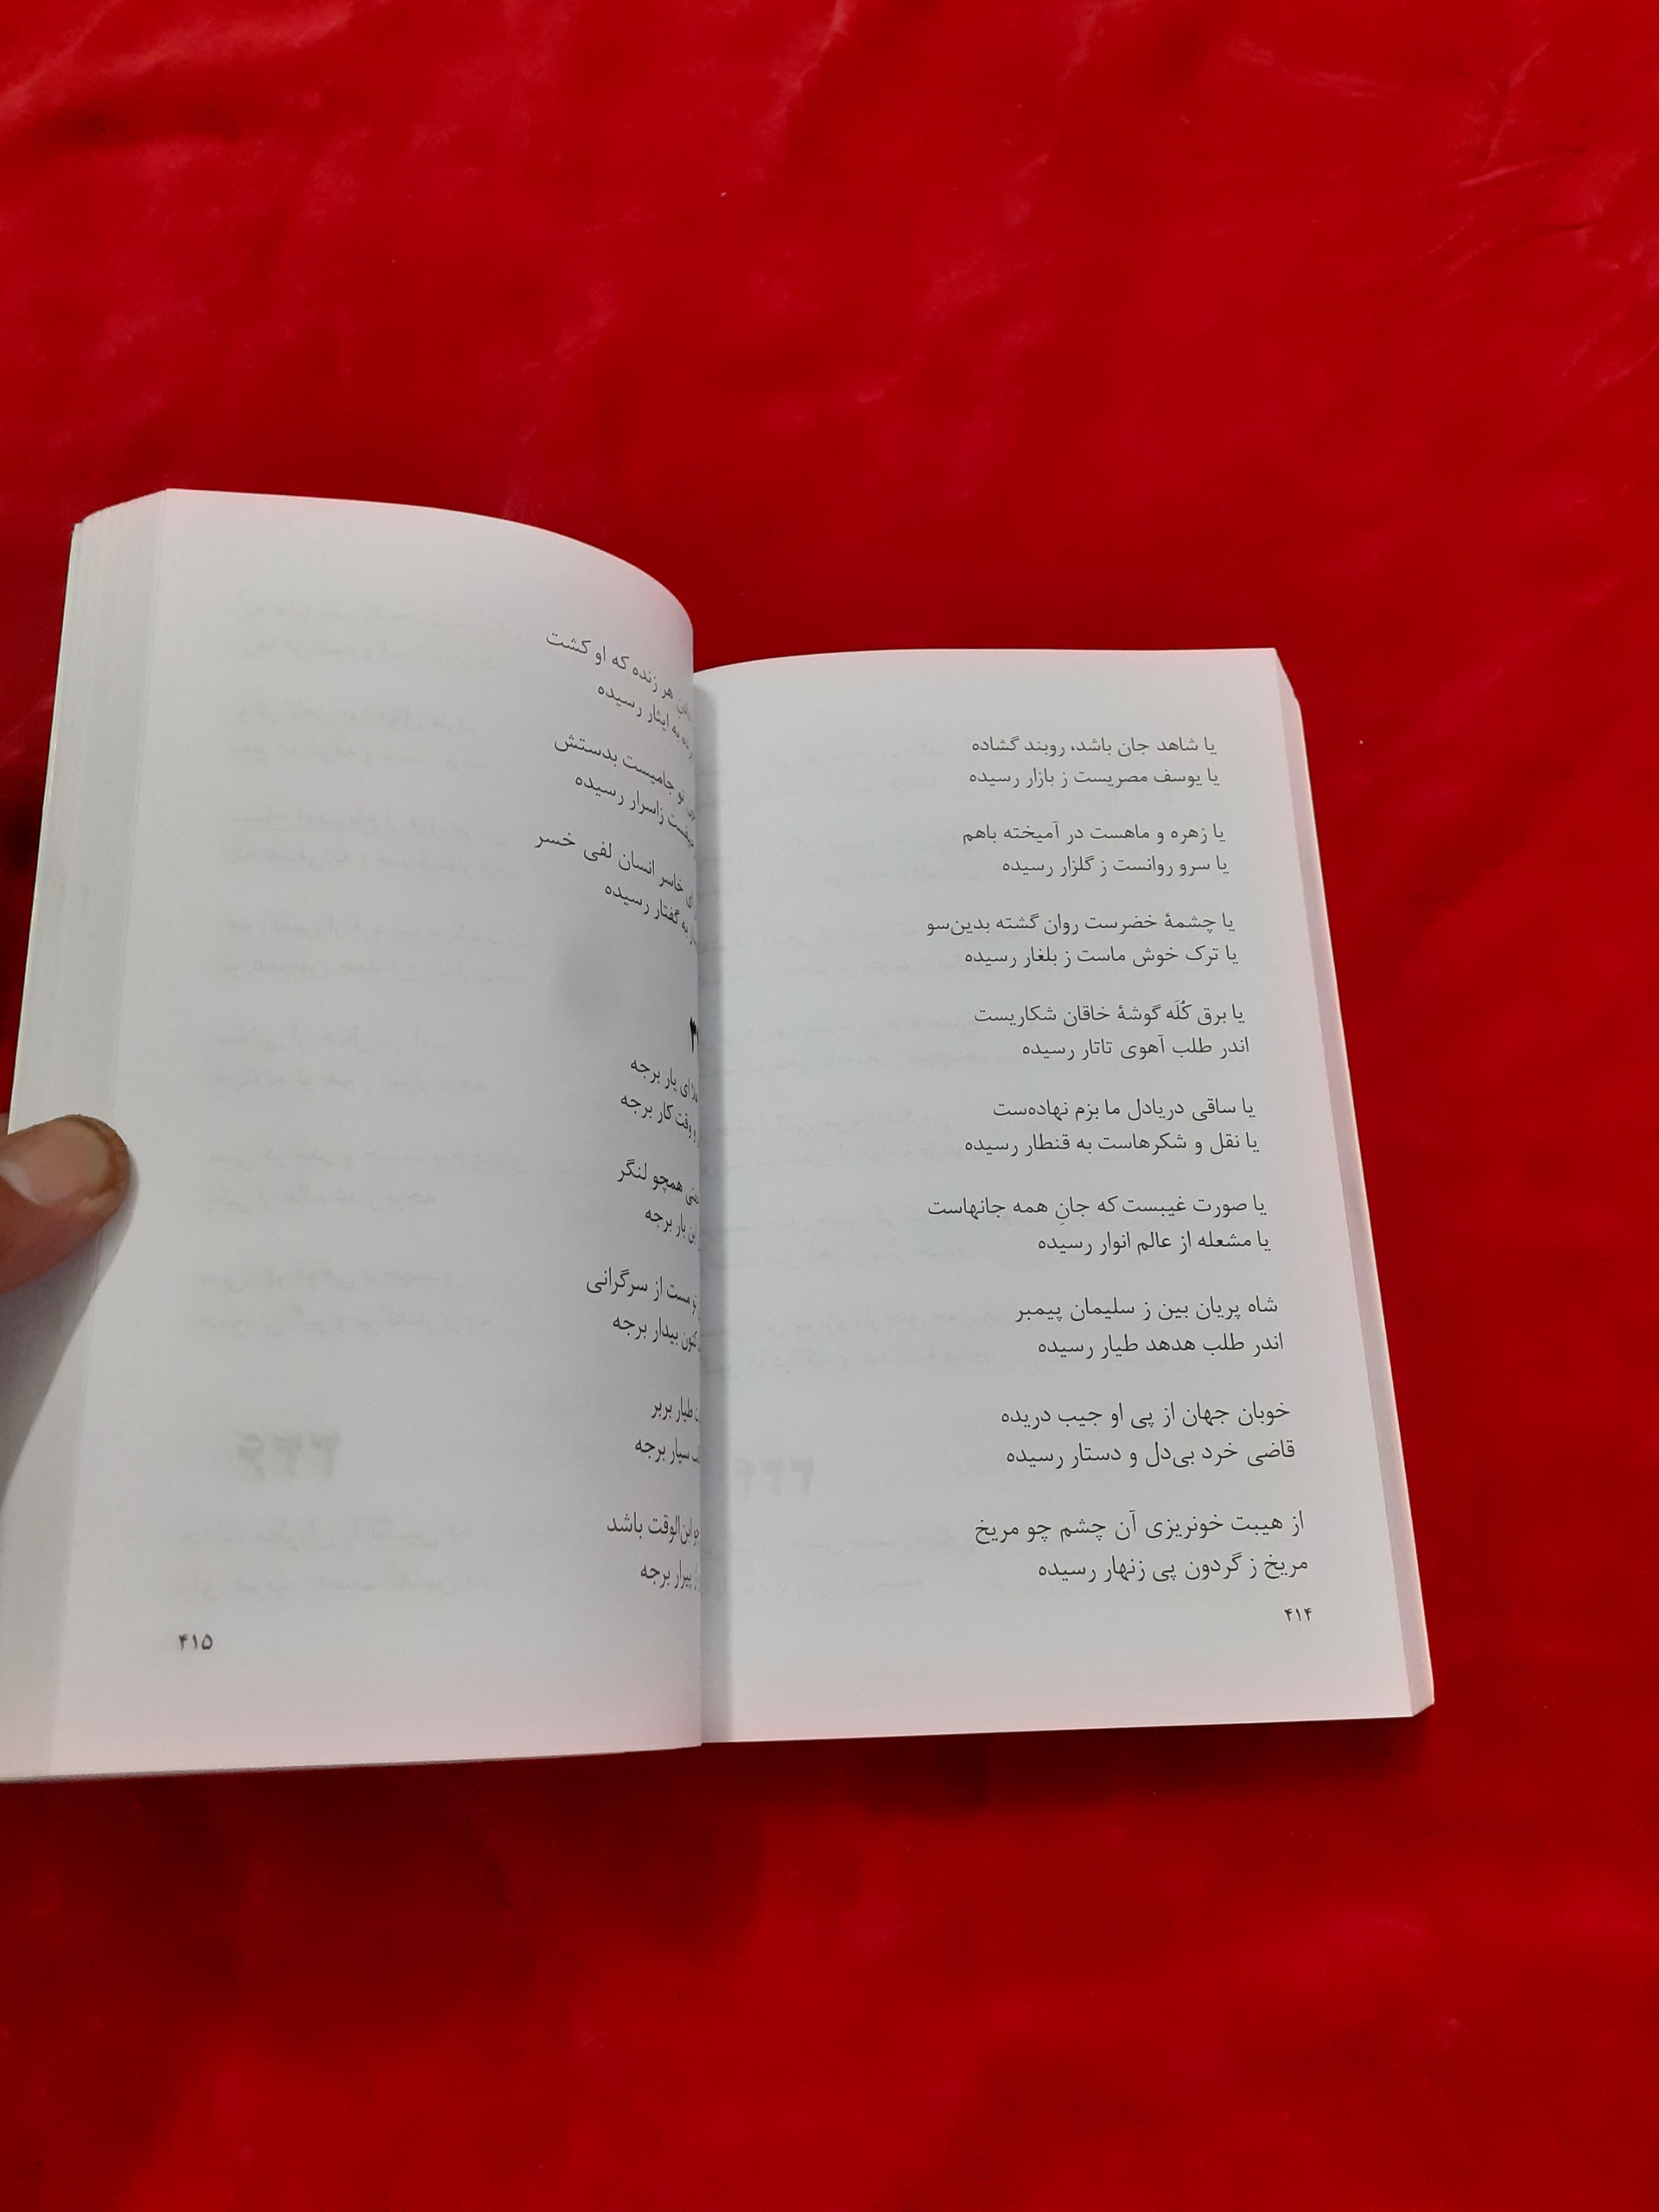 یا شاهد جان باشد، روبند گشاده
یا یوسف مصریست ز بازار رسیده
یا زهره و ماهست در آمیخته باهم
یا سرو روانست ز گلزار رسیده
یا چشمهٔ خضرست روان گشته بدین‌سو
یا ترک خوش ماست ز بلغار رسیده
یا برق کُلَه گوشهٔ خاقان شکاریست
اندر طلب آهوی تاتار رسیده
یا ساقی دریادل ما بزم نهاده‌ست
یا نقل و شکرهاست به قنطار رسیده
یا صورت غیبست که جانِ همه جانهاست
یا مشعله از عالم انوار رسیده
شاه پریان بین ز سلیمان پیمبر
اندر طلب هدهد طیار رسیده
خوبان جهان از پی او جیب دریده
قاضی خرد بی‌دل و دستار رسیده
از هیبت خونریزی آن چشم چو مریخ
مریخ ز گردون پی زنهار رسیده
۴۱۴
هر زنده که او کشت
به ایثار رسیده
تو جامیست بدستش
زاسرار رسیده
ی خاسر انسان لفی خسر
به گفتار رسیده
ای یار برجه
و وقت کار برجه
همچو لنگر
این بار برجه
تو مست از سرگرانی
کنون بیدار برجه
طیار بربر
سیار برجه
ابن‌الوقت باشد
برجه
۴۱۵